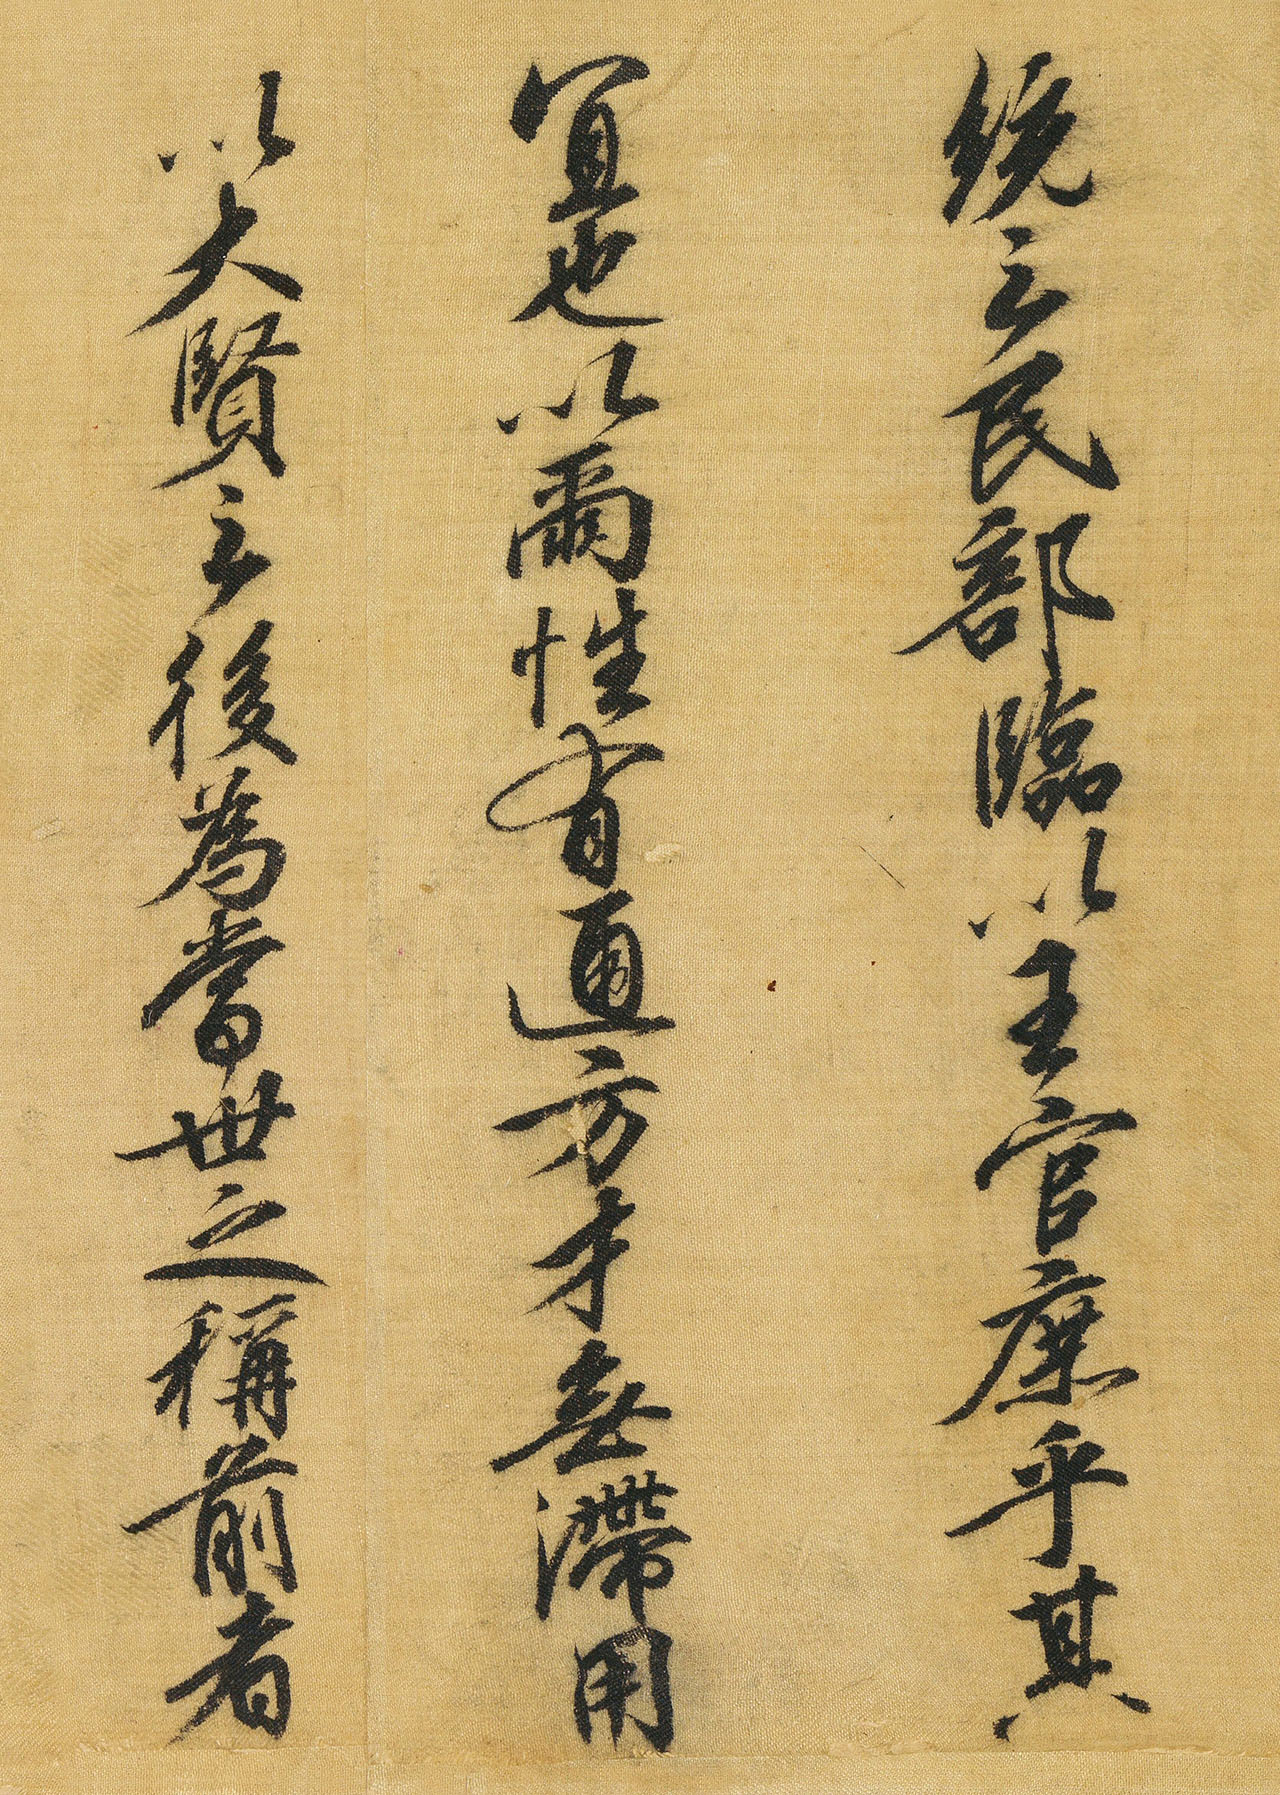 統之民部臨以主官庶乎其
宜也以爾性有通方才無滯用
以大賢之後為當世之稱前者